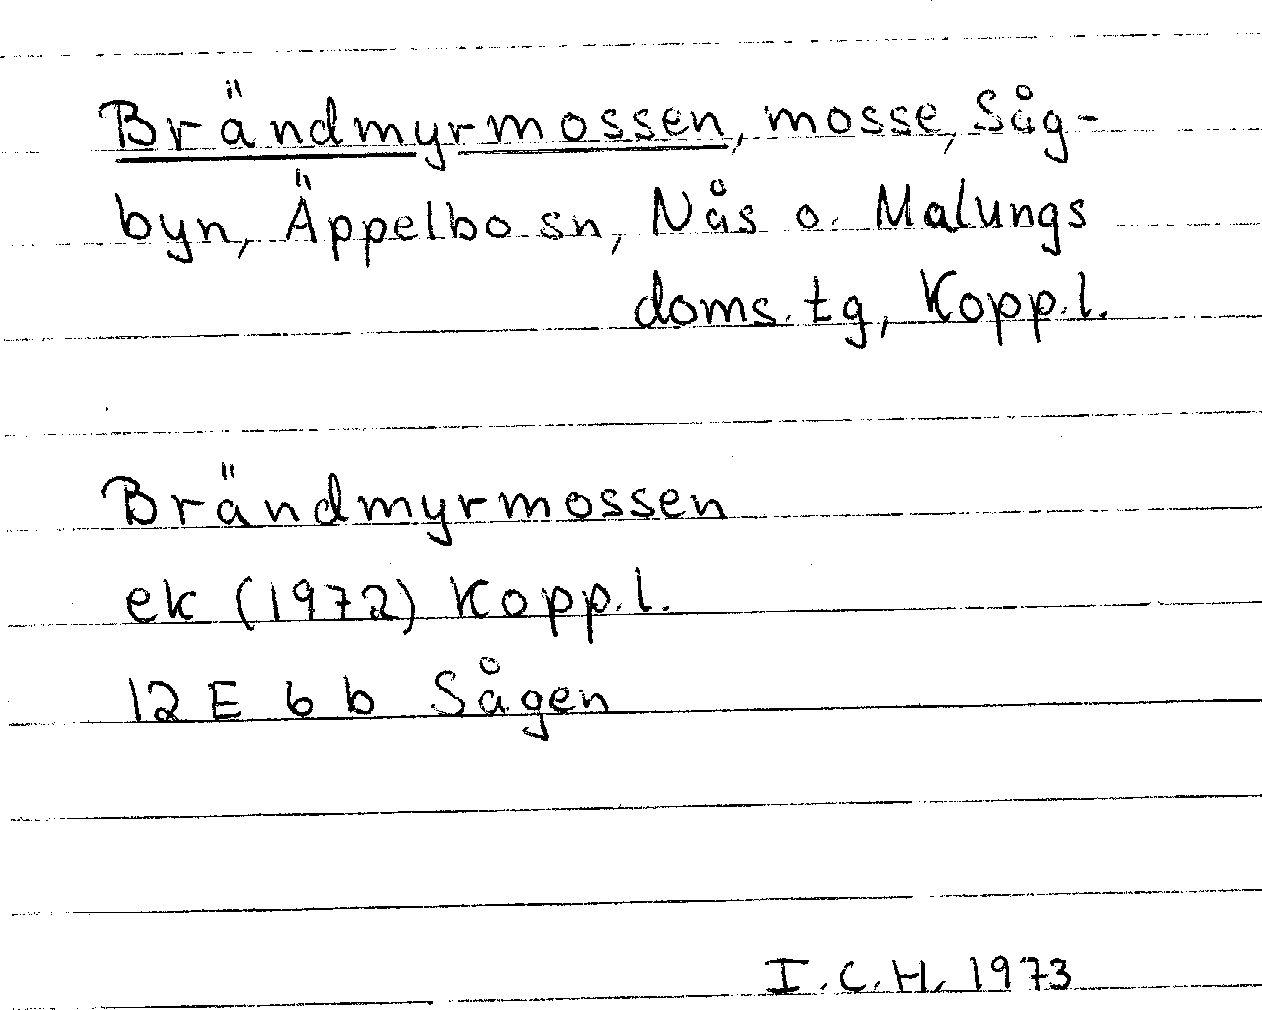 Brändmyrmossen, mosse, Såg-
byn, Äppelbo sn, Nås o. Malungs
doms. tg, Kopp.l.
Brändmyrmossen
ek (1972) Kopp.l.
12 E 6 b Sågen
I.C.H. 1973